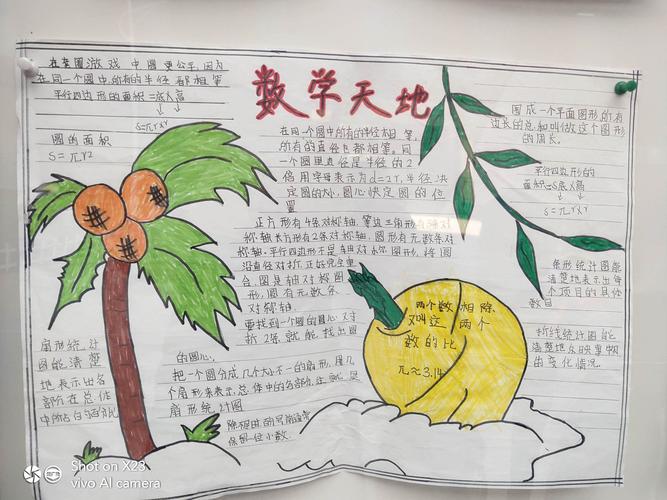 数学天地
在套圈游戏中圆更公平,因为
在同一个圆中,所有的半径都相等
平行四边形的面积=底×高
S=πr×r
圆的面积
S=πr2
在同一个圆中所有的半径相等,
所有的直径也都相等。同
一个圆里直径是半径的2
倍用字母表示为d=2r,半径决
定圆的大小,圆心决定圆的位
置
正方形有4条对称轴,等边三角形有
称轴长方形有2条对称轴,圆形有无数条对
称轴,平行四边形不是轴对称图形,将圆
沿直径对折,正好完全重
合,圆是轴对称图
形,圆有无数条
对称轴。
要找到一个圆的圆心,对
折2次,就能找出圆
的圆心,
把一个圆分成几个大小不一的扇形,用几
个扇形来表示总体中的各部分,这就是
扇形统计图
除不尽时,
保留一位小数.
扇形统计
图能清楚
地表示出各
部分在总体
中所占的百分比
围成一个平面图形的所有
边长的总和叫做这个图形
的周长.
平行四边形的
面积=底×高
S=πr×r
条形统计图能
清楚地表示出每
个项目的具体
数目
折线统计图能
清楚地反映事物
的变化情况.
两个数相除
又叫这两个
数的比
π≈3.14
Shot on X23
vivo AI camera